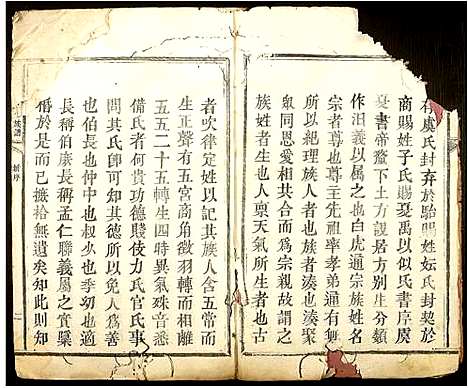 有虞氏封弃於駘賜姓妘氏封契於
商賜姓子氏賜夏禹以似氏書序虞
夏書帝釐下土方別生分類
作汩義以属之也白虎通宗族姓名
宗者尊也尊主先祖率孝弟通有
所以絕理族人者也族者湊也湊聚
衆同恩愛為宗親故謂之
族姓者生也人禀天氣所生者也古
者吹律定姓以記其族人含五常而
生正聲有五宮商角徵羽轉而相離
五五二十五轉生四時異氣殊音悉
備氏者何貴功德賤伎力氏官氏事
問其氏即可知其德所以免人為善
也伯仲叔也季幼也適
長稱伯庶長稱孟仁聯義属之實槩
偹於是而已摭拾無遺矣知此則知
族譜
序
二